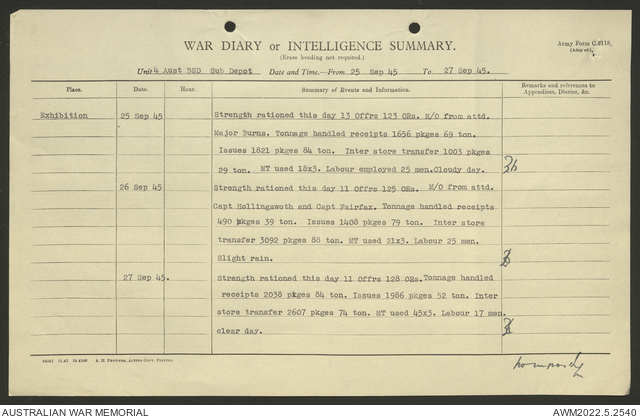 Army Form C.2118.
(Adapted).
WAR DIARY or INTELLIGENCE SUMMARY.
(Erase heading not required.)
Unit 4 Aust BSD Sub Depot Date and Time.—From 25 Sep 45 To 27 Sep 45.
Place. Date. Hour. Summary of Events and Information. Remarks and references to Appendices, Diaries, &c.
Exhibition 25 Sep 45 Strength rationed this day 13 Offrs 123 ORs. M/O from attd.
Major Burns. Tonnage handled receipts 1656 pkges 69 ton.
Issues 1821 pkges 84 ton. Inter store transfer 1003 pkges
29 ton. MT used 18x3. Labour employed 25 men. Cloudy day.
26 Sep 45 Strength rationed this day 11 Offrs 125 ORs. M/O from attd.
Capt Hollingswoth and Capt Fairfax. Tonnage handled receipts
490 pkges 39 ton. Issues 1408 pkges 79 ton. Inter store
transfer 3092 pkges 88 ton. MT used 21x3. Labour 25 men.
Slight rain.
27 Sep 45. Strength rationed this day 11 Offrs 128 ORs. Tonnage handled
receipts 2038 pkges 84 ton. Issues 1986 pkges 52 ton. Inter
store transfer 2607 pkges 74 ton. MT used 45x3. Labour 17 men.
clear day.
A. H. Pettifer, Acting Govt. Printer.
AUSTRALIAN WAR MEMORIAL AWM2022.5.2540